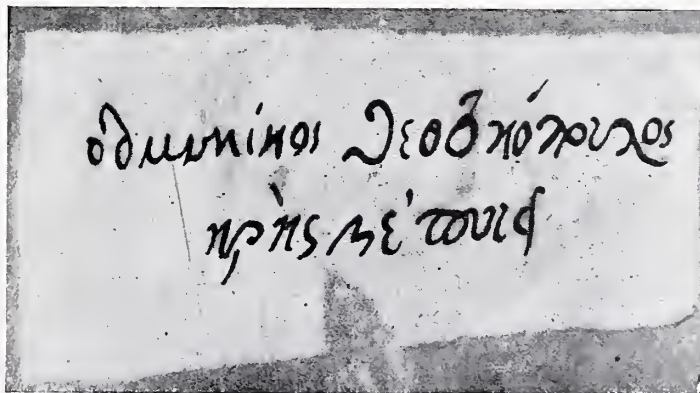 δομήνικος θεοτοκόπουλος
κρὴς ἐποίει